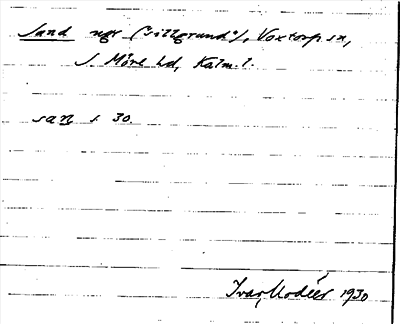 Sand ngr ("sillgrund"), Voxtorp sn,
S. Möre hd, Kalm. l.
san s. 30.
Ivar Modéer 1930